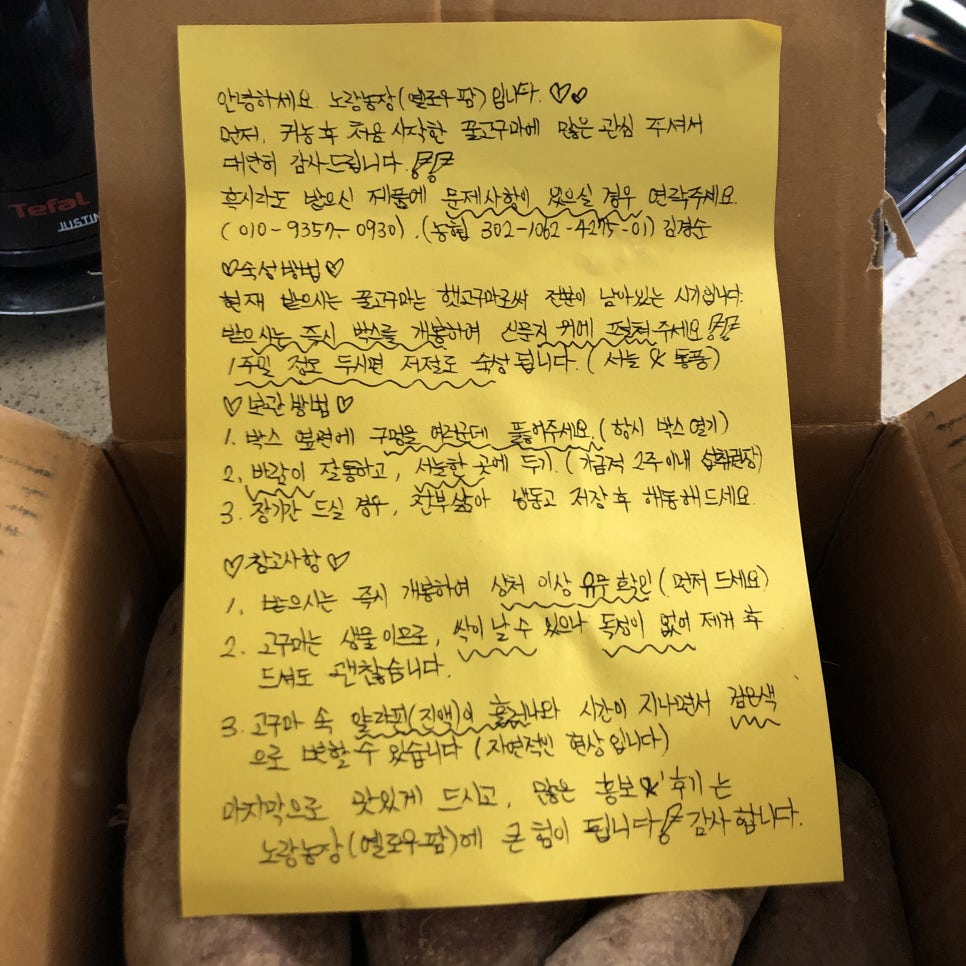 Tefal
JUSTIN
안녕하세요. 노랑농장(옐로우팜)입니다.
먼저, 귀농후 처음 시작한 꿀고구마에 많은 관심 주셔서
대단히 감사드립니다.!!
혹시라도 받으신 제품에 문제사항에 있으실 경우 연락주세요.
(010-9357-0930).(농협 302-1062-4275-01) 김경순
숙성방법
현재 받으시는 꿀고구마는 햇고구마로써 전분이 남아있는 시기입니다.
받으시는 즉시 박스를 개봉하여 신문지 위에 펼쳐주세요!!
1주일 정도 두시면 저절로 숙성됩니다. (서늘 & 통풍)
보관방법
1. 박스 옆면에 구멍을 여러군데 뚫어주세요. (항시 박스 열기)
2. 바람이 잘통하고, 서늘한 곳에 두기. (가급적 2주이내 섭취권장)
3. 장기간 드실 경우, 전부삶아 냉동고 저장 후 해동해드세요.
참고사항
1. 받으시는 즉시 개봉하여 상처 이상 유무 확인 (먼저 드세요)
2. 고구마는 생물이므로, 싹이 날 수 있으나 독성이 없어 제거 후
드셔도 괜찮습니다.
3. 고구마 속 얄라핀(진액)이 흘러나와 시간이 지나면서 검은색
으로 변할 수 있습니다 (자연적인 현상입니다)
마지막으로 맛있게 드시고, 많은 홍보 & 후기는
노랑농장(옐로우팜)에 큰 힘이 됩니다! 감사합니다.